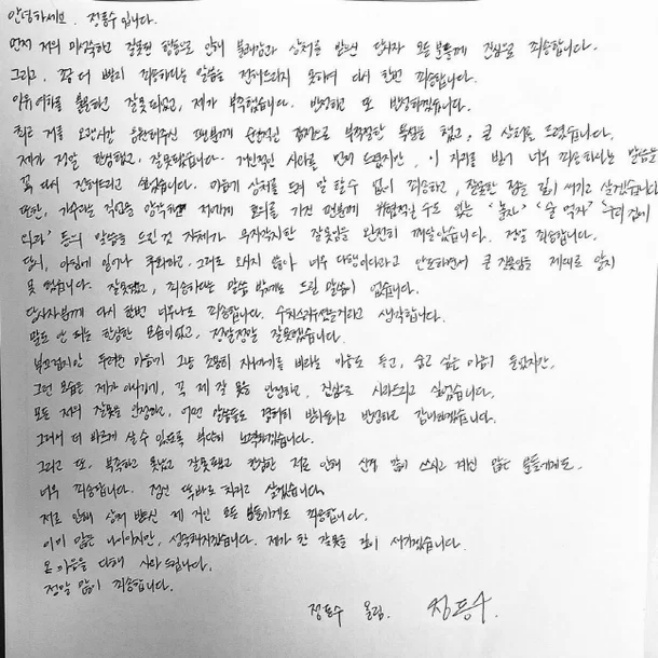 안녕하세요. 정통수입니다.
먼저 저의 미숙하고 잘못된 행동으로 인해 불쾌감과 상처를 받으신 당사자 모든 분들께 진심으로 죄송합니다.
그리고, 좀 더 빨리 죄송하다는 말씀을 전해드리지 못하여 다시 한번 죄송합니다.
이유 여하를 불문하고 잘못되었고, 제가 부족했습니다. 반성하고 또 반성하겠습니다.
특히 저를 오랜시간 응원해주신 팬분께 순간적인 감정으로 부적절한 언행을 했고, 큰 상처를 드렸습니다.
제가 정말 한심했고, 잘못했습니다. 개인적인 사과를 먼저 드렸지만, 이 자리를 빌어 너무 죄송하다는 말씀을
꼭 다시 전해드리고 싶었습니다. 마음의 상처를 드려 말할 수 없이 죄송하고, 잘못한 점을 깊이 새기고 살겠습니다.
또한, 가수라는 직업을 망각하고 저에게 호의를 가진 팬분께 위협적일 수도 있는 '혼자' '술 먹자' '우리 집에
와라' 등의 말씀을 드린 것 자체가 무자각적인 잘못임을 완전히 깨달았습니다. 정말 죄송합니다.
당시, 아침에 일어나 후회하고, 그래도 오시지 않아 너무 다행이다라고 안도하면서 큰 잘못임을 제대로 알지
못했습니다. 잘못했고, 죄송하다는 말씀 밖에는 드릴 말씀이 없습니다.
당사자분께 다시 한번 너무나도 죄송합니다. 수치스러우셨을거라고 생각합니다.
말도 안 되는 한심한 모습이었고, 정말정말 잘못했습니다.
부끄럽지만 두려운 마음에 그냥 조용히 지나가기를 바라는 마음도 들고, 숨고 싶은 마음이 들었지만,
그런 모습은 제가 아니기에, 꼭 제 잘못을 인정하고, 진심으로 사과드리고 싶었습니다.
모든 저의 잘못을 인정하고, 어떤 말씀들도 겸허히 받아들이고 반성하고 감내하겠습니다.
그래서 더 바르게 살 수 있도록 부단히 노력하겠습니다.
그리고 또, 부족하고 못났고 잘못했고 한심한 저로 인해 신경 많이 쓰시고 계신 많은 분들에게도,
너무 죄송합니다. 정신 똑바로 차리고 살겠습니다.
저로 인해 상처 받으신 제 지인 모든 분들에게도 죄송합니다.
이미 많은 나이이지만, 성숙해지겠습니다. 제가 한 잘못을 깊이 새기겠습니다.
온 마음을 다해 사과 드립니다.
정말 많이 죄송합니다.
정통수 올림.